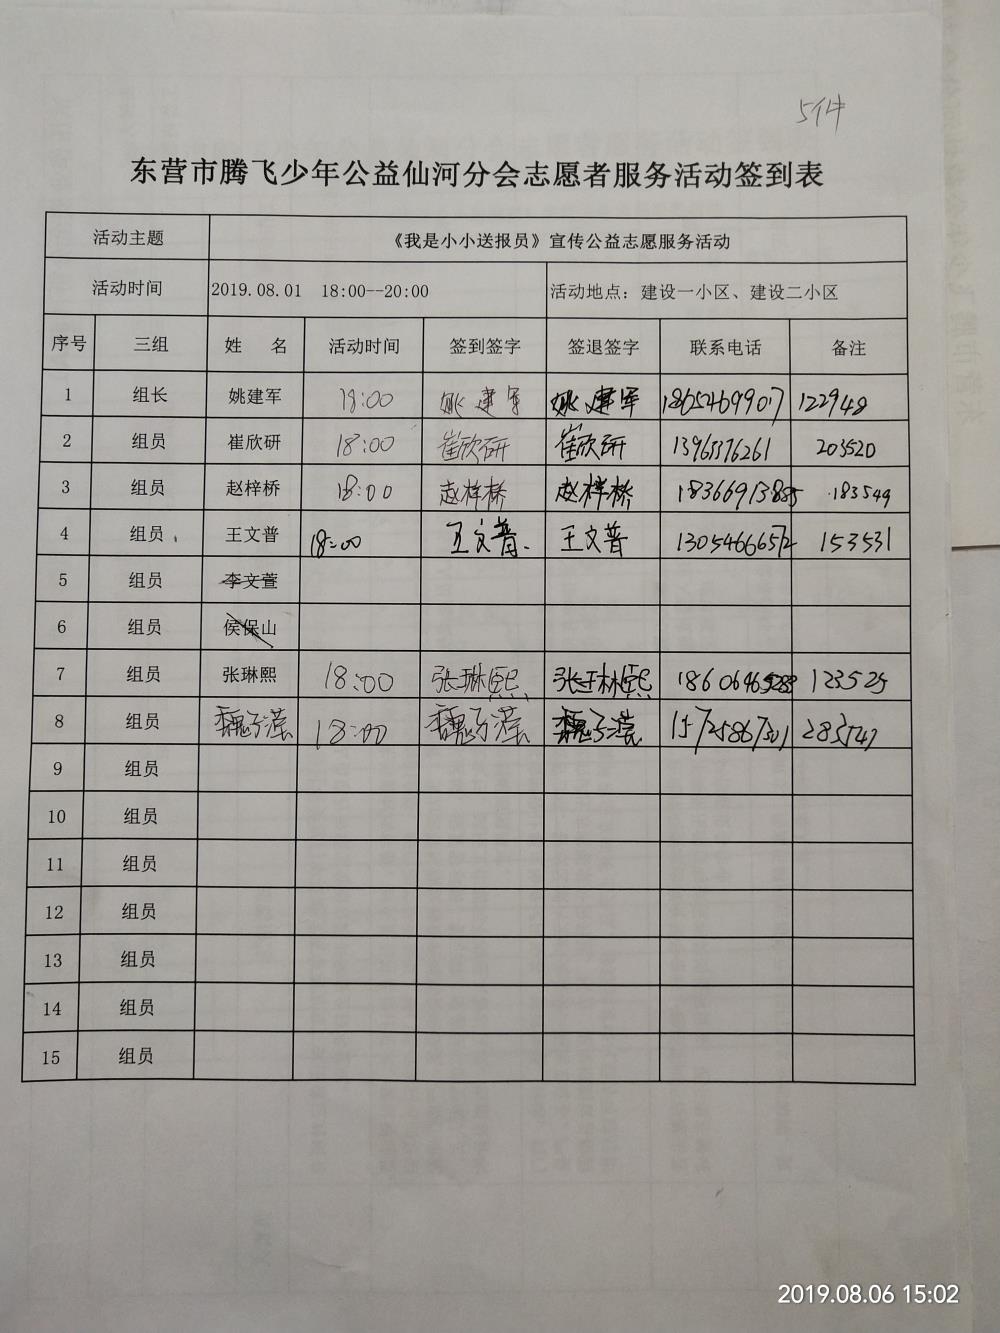 5仆
东营市腾飞少年公益仙河分会志愿者服务活动签到表
活动主题 《我是小小送报员》宣传公益志愿服务活动
活动时间 2019.08.01 18:00--20:00 活动地点：建设一小区、建设二小区
序号 三组 姓 名 活动时间 签到签字 签退签字 联系电话 备注
1 组长 姚建军 18:00 姚建军 姚建军 18654699017 122948
2 组员 崔欣研 18:00 崔欣研 崔欣研 203520
3 组员 赵梓桥 18:00 赵梓桥 赵梓桥 18366913885 183549
4 组员 王文普 18:00 王文普 王文普 13054666572 153531
5 组员 李文萱
6 组员 侯保山
7 组员 张琳熙 18:00 张琳熙 张琳熙 123525
8 组员 魏子滢 18:00 魏子滢 魏子滢 15725867301 283547
9 组员
10 组员
11 组员
12 组员
13 组员
14 组员
15 组员
2019.08.06 15:02